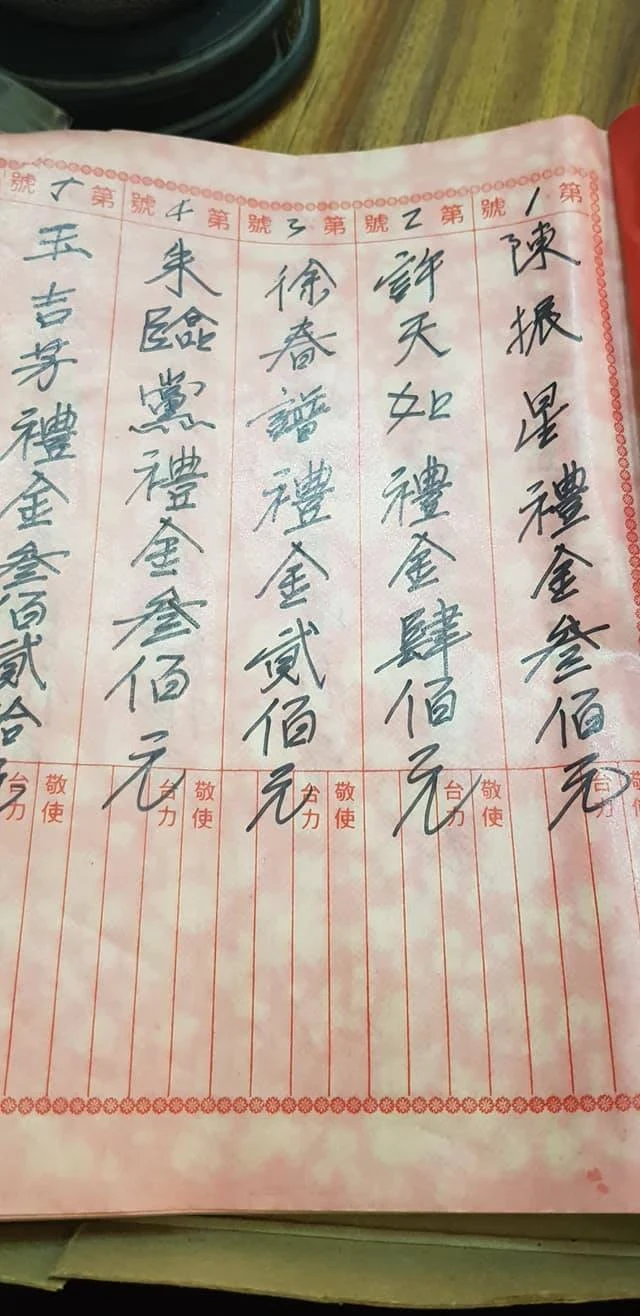 第1號
陳振星禮金叁佰元
敬使
台力
第2號
許天如禮金肆佰元
敬使
台力
第3號
徐春譜禮金貳佰元
敬使
台力
第4號
朱臨黨禮金叁佰元
敬使
台力
第5號
玉吉芽禮金叁佰貳拾元
敬使
台力